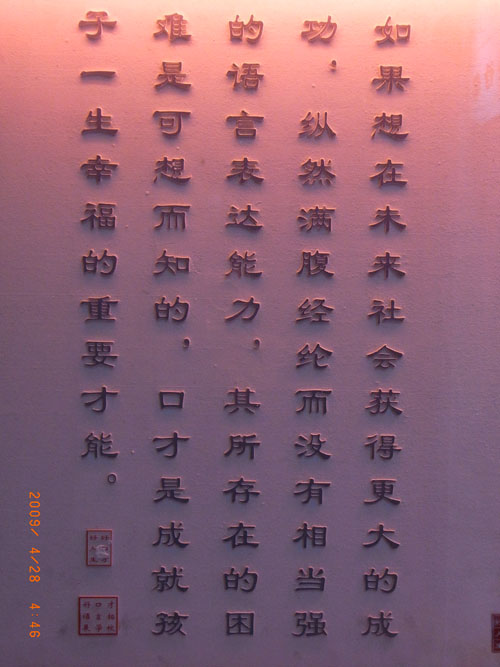 如果想在未来社会获得更大的成
功，纵然满腹经纶而没有相当强
的语言表达能力，其所存在的困
难是可想而知的，口才是成就孩
于一生幸福的重要才能。
2009/ 4/28 4:46